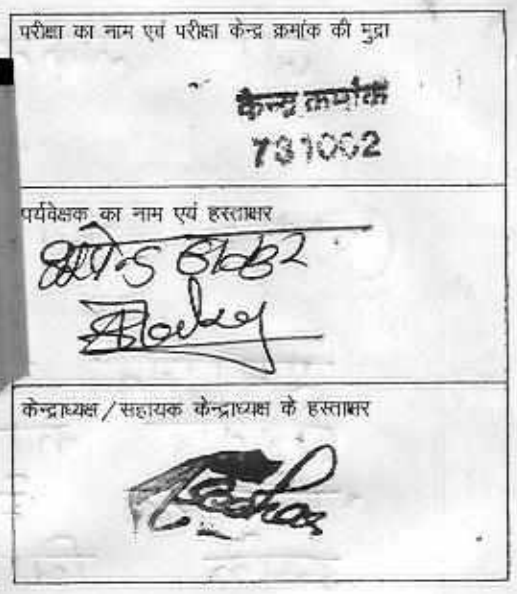 परीक्षा का नाम एवं परीक्षा केन्द्र क्रमांक की मुद्रा
केन्द्र क्रमांक
731002
पर्यवेक्षक का नाम एवं हस्ताक्षर
ठाकुर
केन्द्राध्यक्ष/सहायक केन्द्राध्यक्ष के हस्ताक्षर